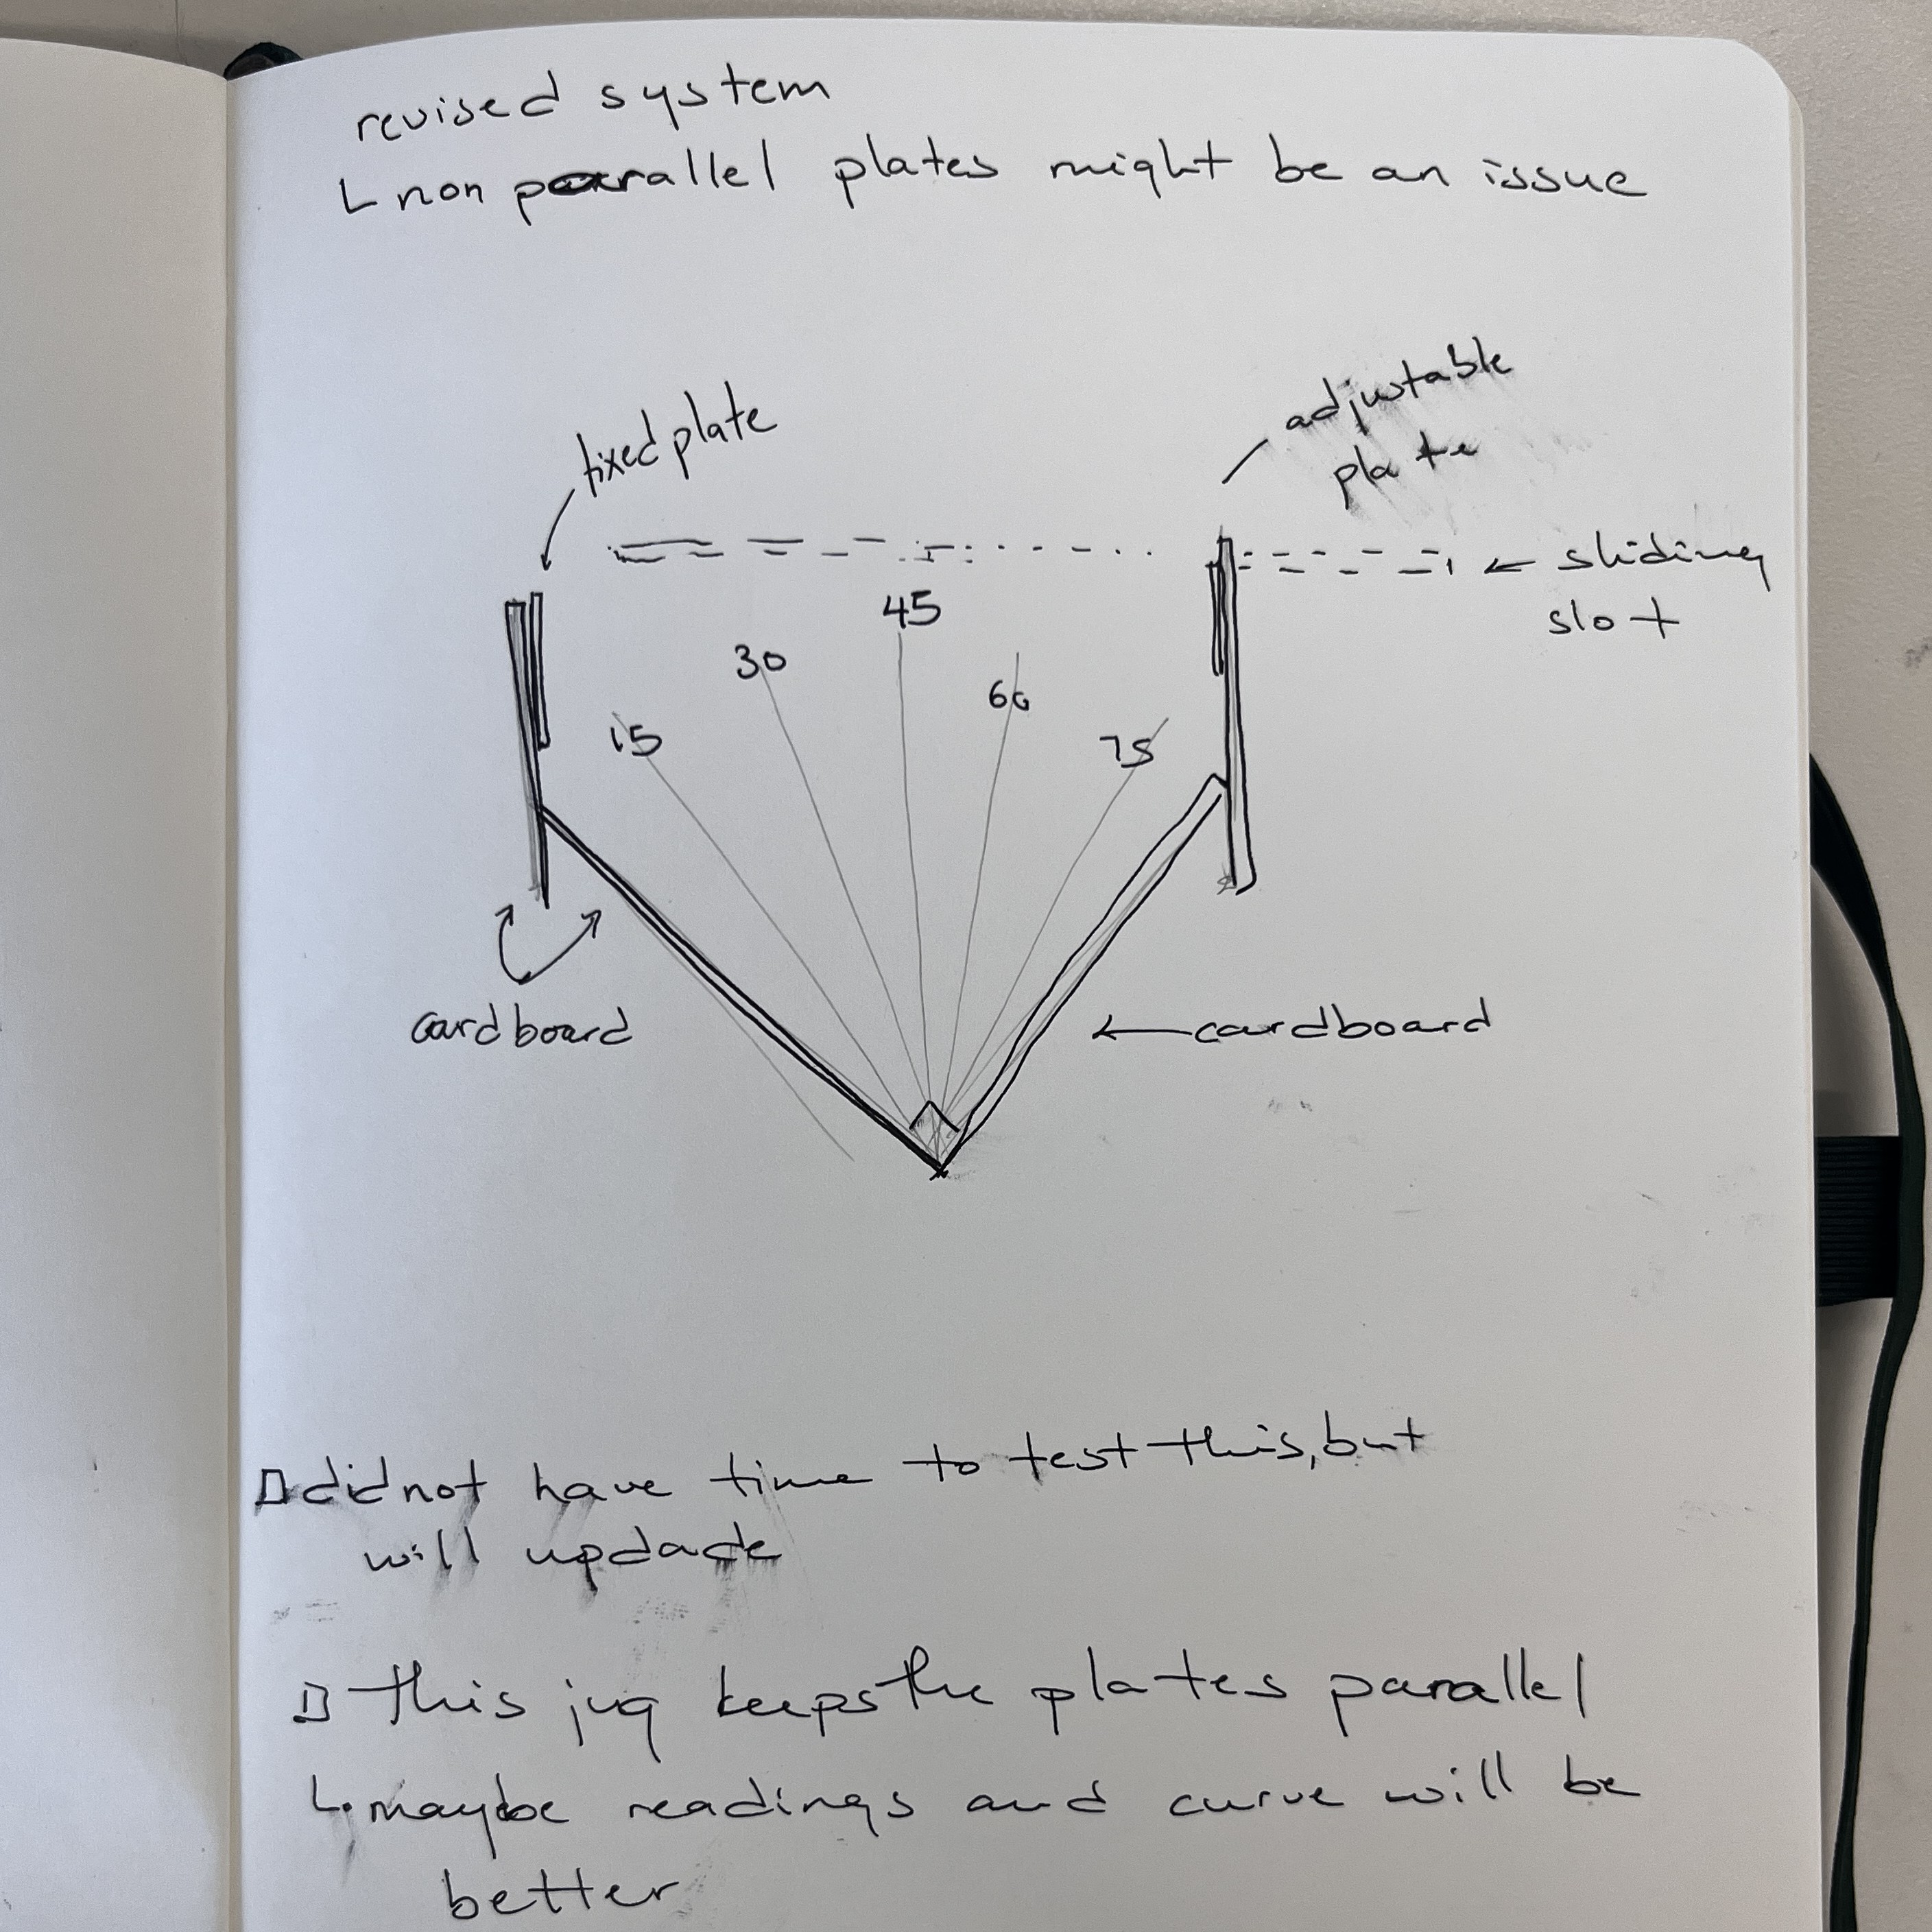 revised system
└ non parallel plates might be an issue
fixed plate
adjustable
plate
sliding
slot
45
30
60
15
75
cardboard
cardboard
did not have time to test this, but
will update
this jig keeps the plates parallel
└ maybe readings and curve will be
better